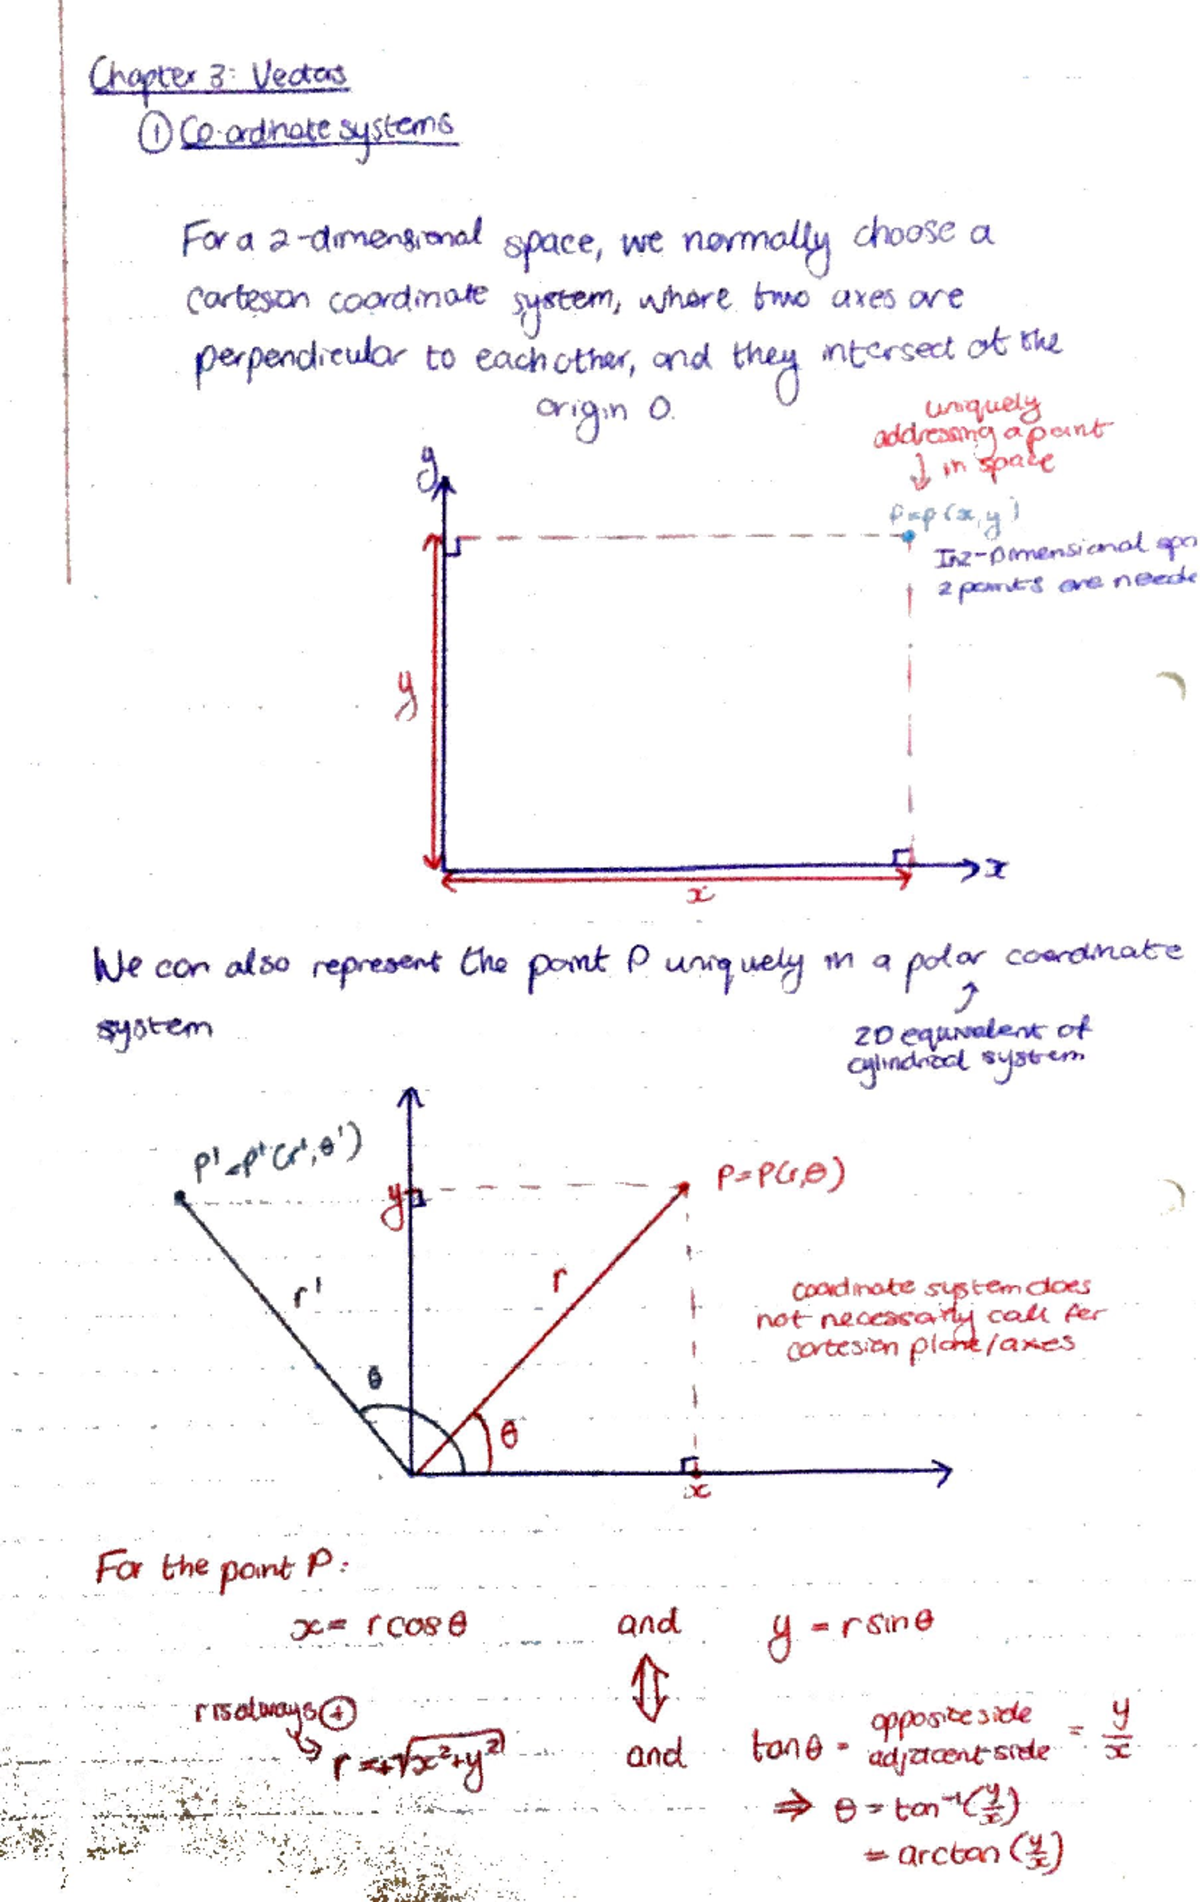 Chapter 3: Vectors
① Co-ordinate systems
For a 2-dimensional space, we normally choose a
cartesian coordinate system, where two axes are
perpendicular to each other, and they intersect at the
origin O.
uniquely
addressing a point
in space
y
P=P(x,y)
In 2-Dimensional
2 points are neede
y
x
x
We can also represent the point P uniquely in a polar coordinate
system
2D equivalent of
cylindrical system
P'=P'(r',θ')
P=P(r,θ)
y
r'
r
coordinate system does
not necessarily call for
cartesian plane/axes
θ
θ
x
For the point P:
x = r cos θ and y = r sin θ
⇕
r is always ⊕
r = +√x²+y² and tan θ = opposite side / adjacent side = y/x
⇒ θ = tan⁻¹(y/x)
= arctan (y/x)